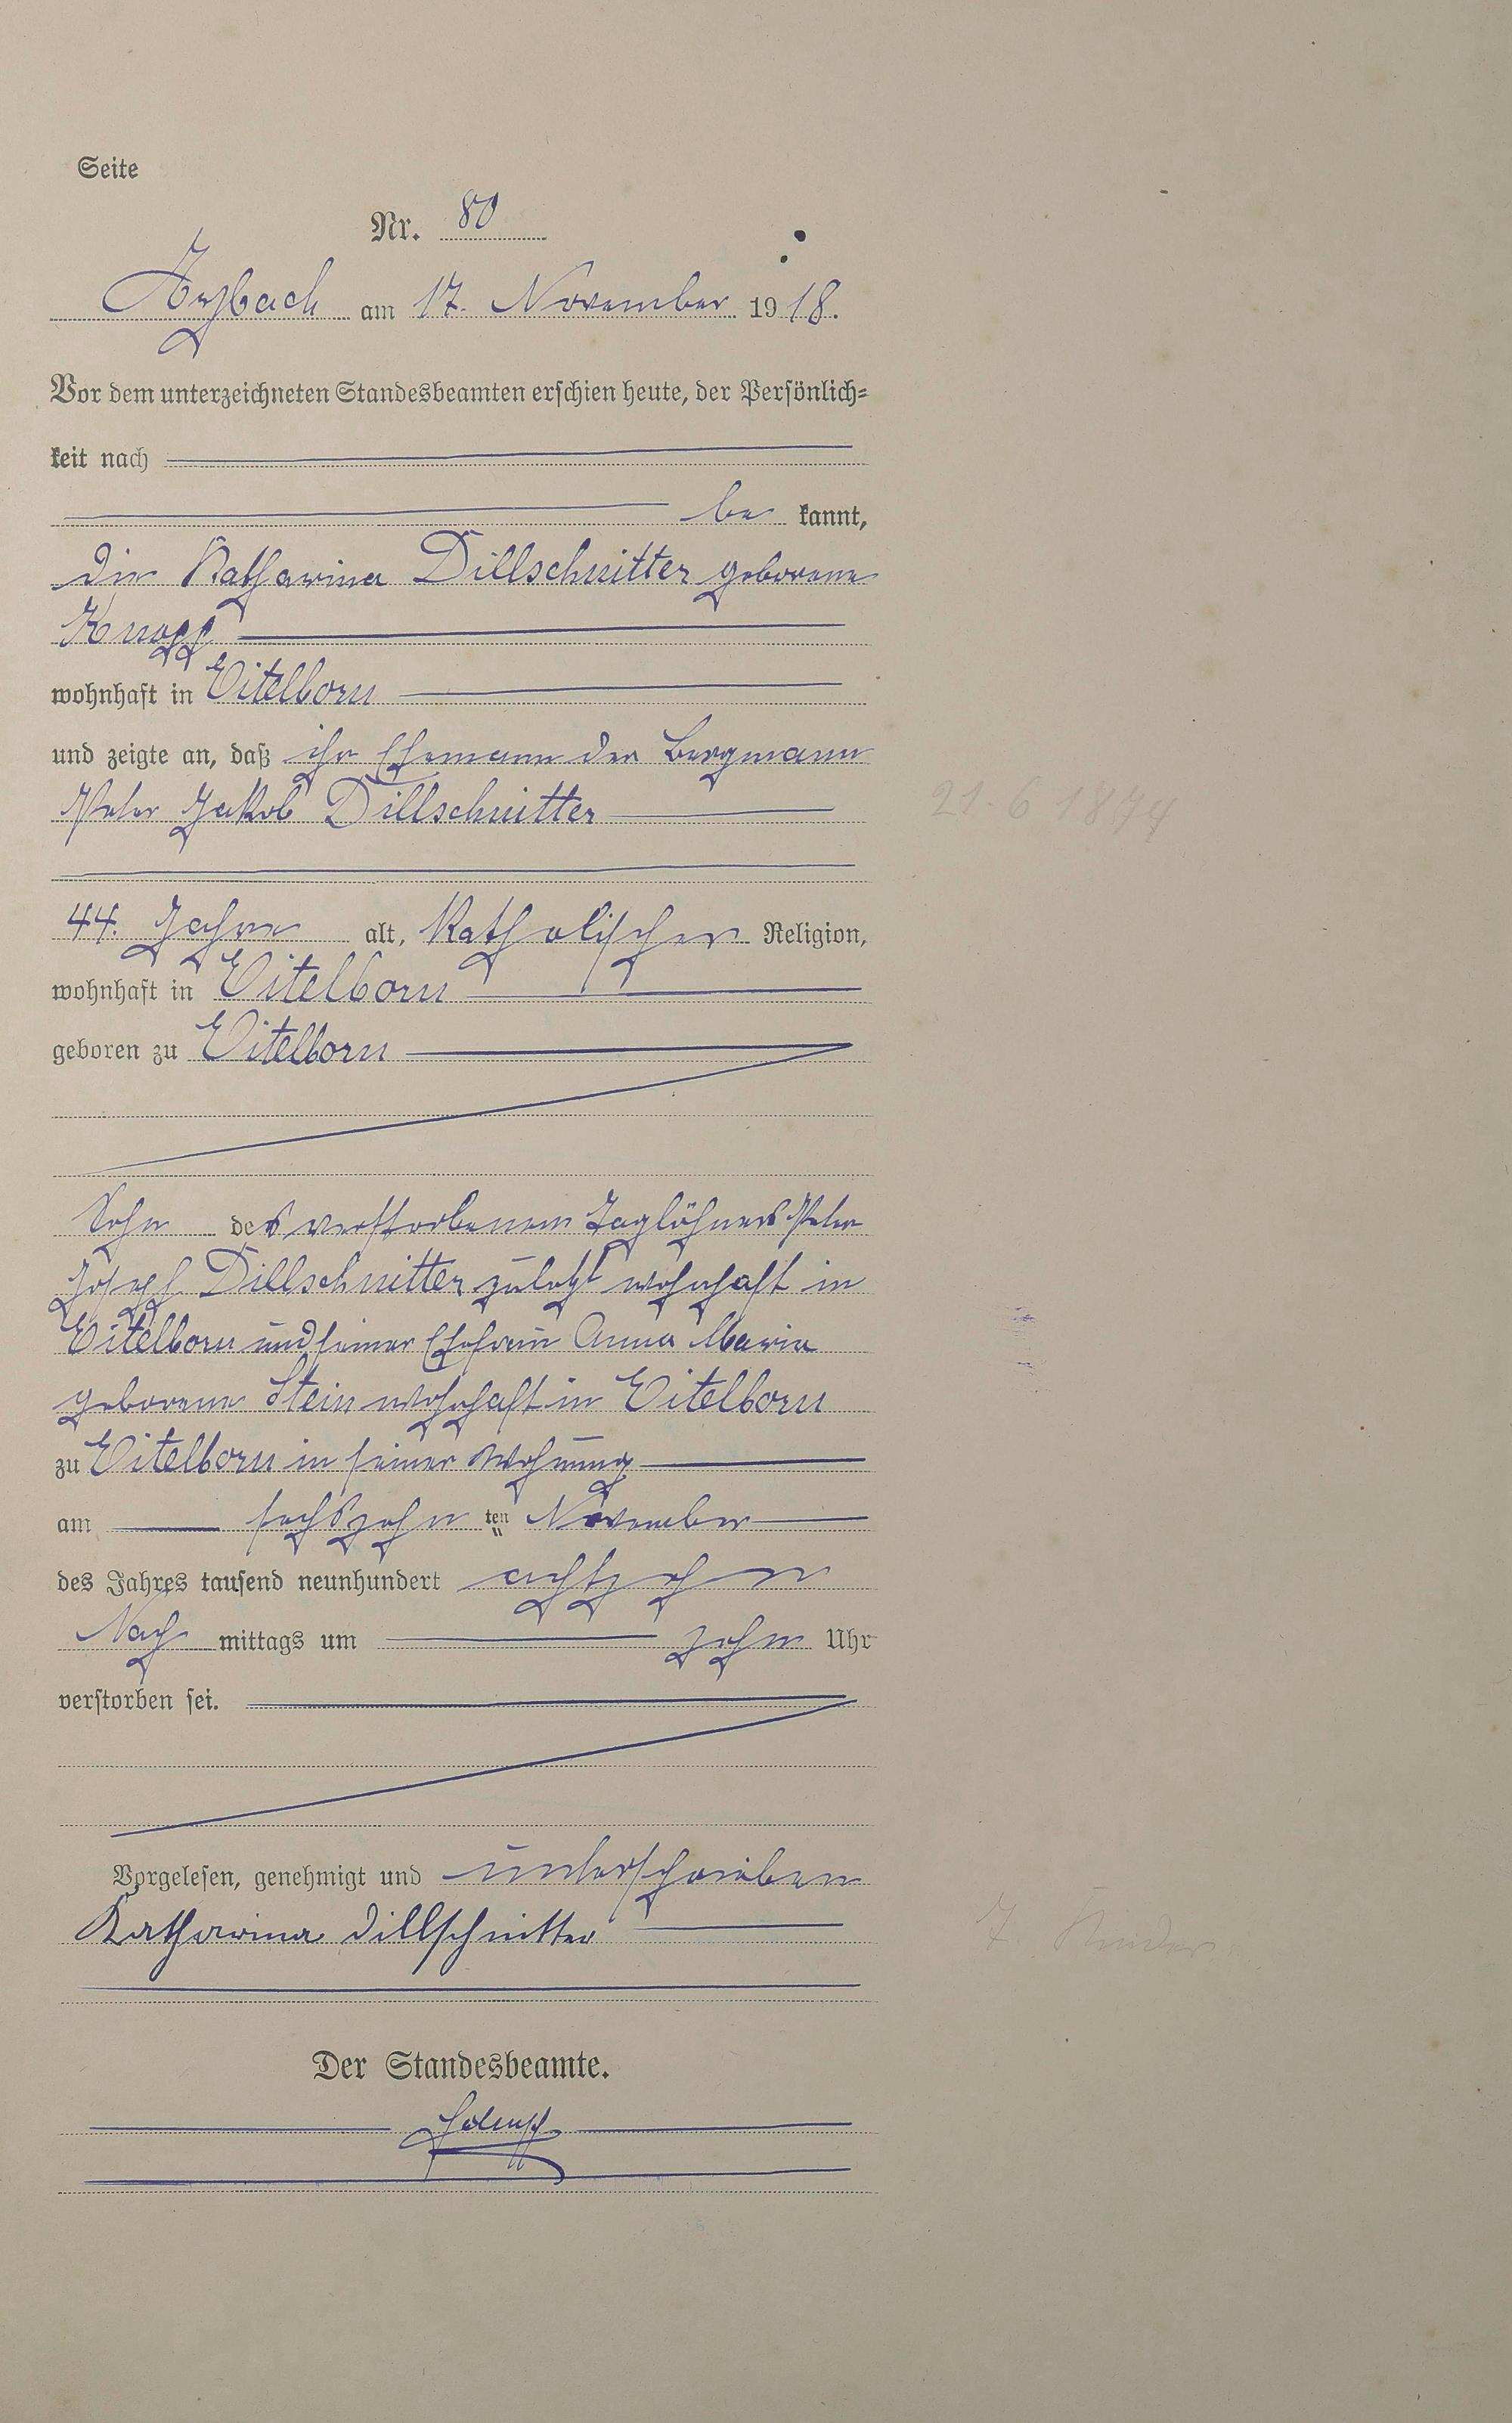 Seite
Nr. 80
Arzbach am 17. November 1918.
Vor dem unterzeichneten Standesbeamten erschien heute, der Persönlich=
keit nach
be kannt,
die Katharina Dillschnitter geborene
Knopp
wohnhaft in Eitelborn
und zeigte an, daß ihr Ehemann der Bergmann
Peter Jakob Dillschnitter
21.6 1874
44. Jahre alt, Katholischer Religion,
wohnhaft in Eitelborn
geboren zu Eitelborn
Sohn des verstorbenen Taglöhners Peter
Joseph Dillschnitter zuletzt wohnhaft in
Eitelborn und seiner Ehefrau Anna Maria
geborene Stein wohnhaft in Eitelborn
zu Eitelborn in seiner Wohnung
am sechszehn ten November
des Jahres tausend neunhundert achtzehn
Nach mittags um zehn Uhr
verstorben sei.
Vorgelesen, genehmigt und unterschrieben
Katharina Dillschnitter
7. Kinder
Der Standesbeamte.